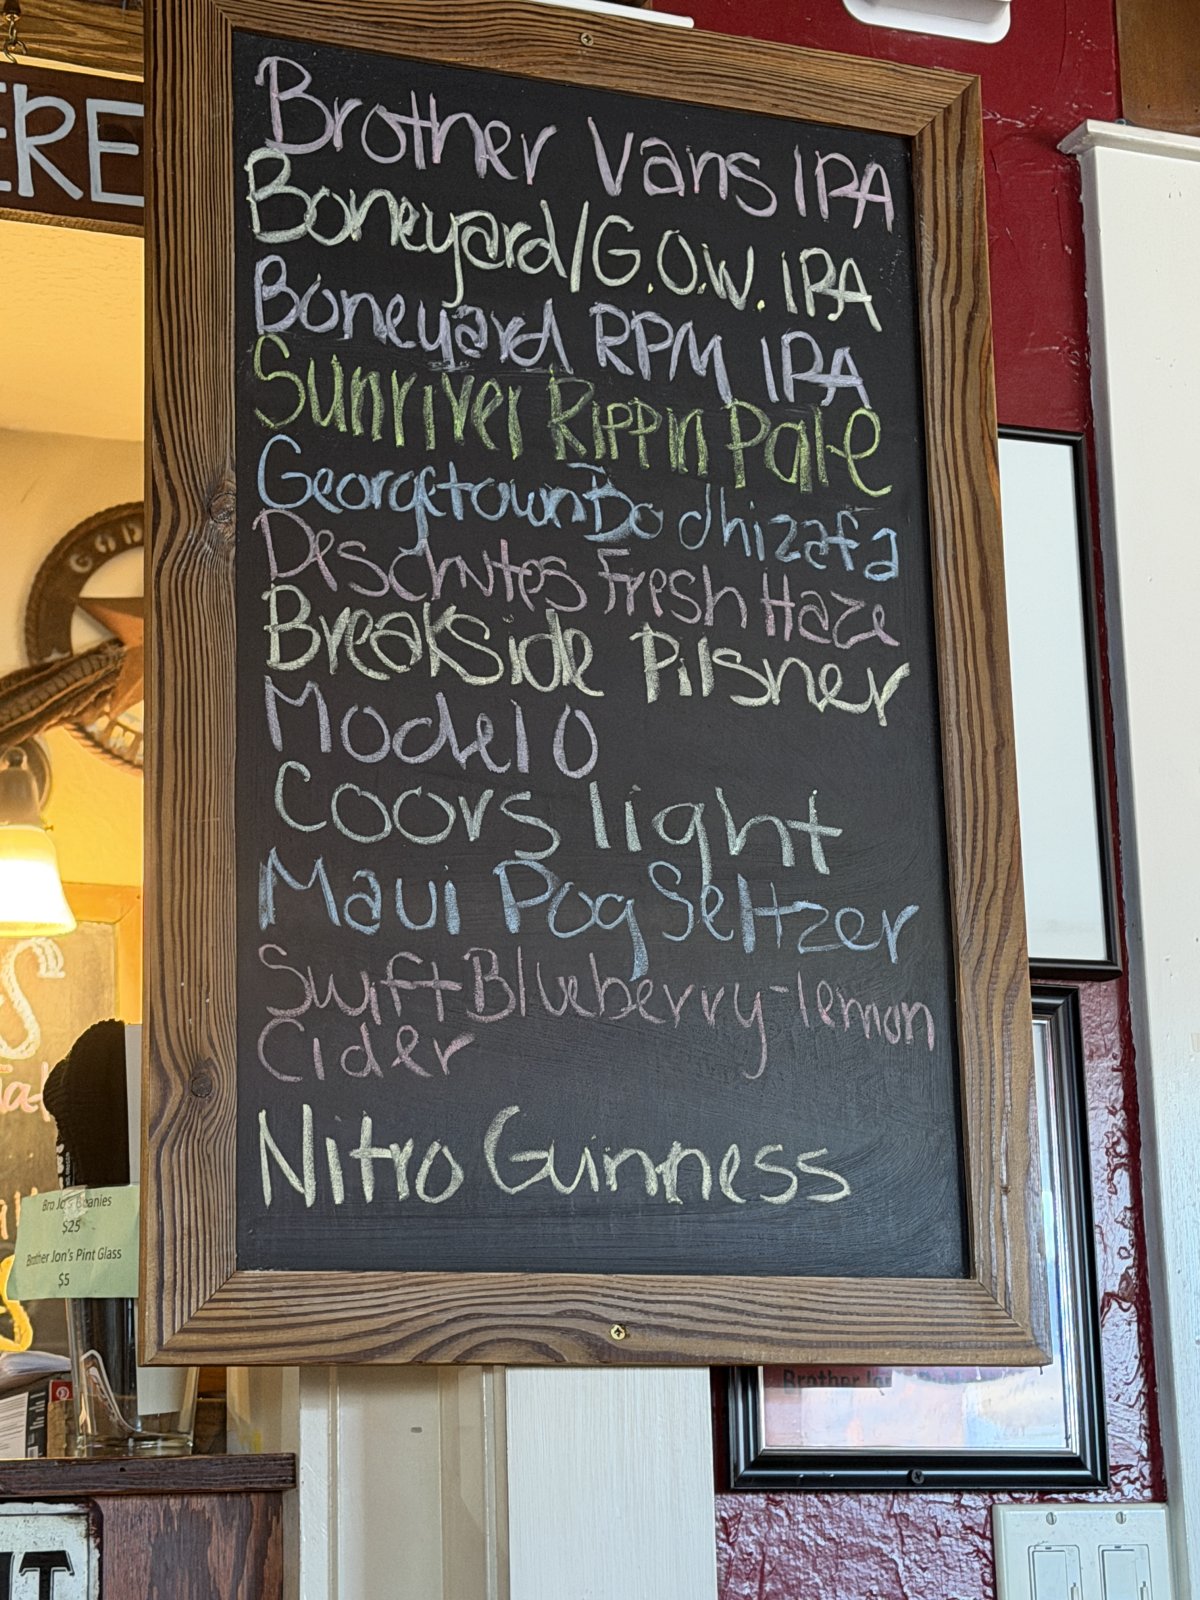 ERE
Brother Vans IPA
Boneyard/G.O.W. IPA
Boneyard RPM IPA
Sunriver Rippin Pale
Georgetown Bodhizafa
Deschutes Fresh Haze
Breakside Pilsner
Modelo
Coors light
Maui Pog Seltzer
Swift Blueberry-lemon
Cider
Nitro Guinness
Bro Jo's Beanies
$25
Brother Jon's Pint Glass
$5